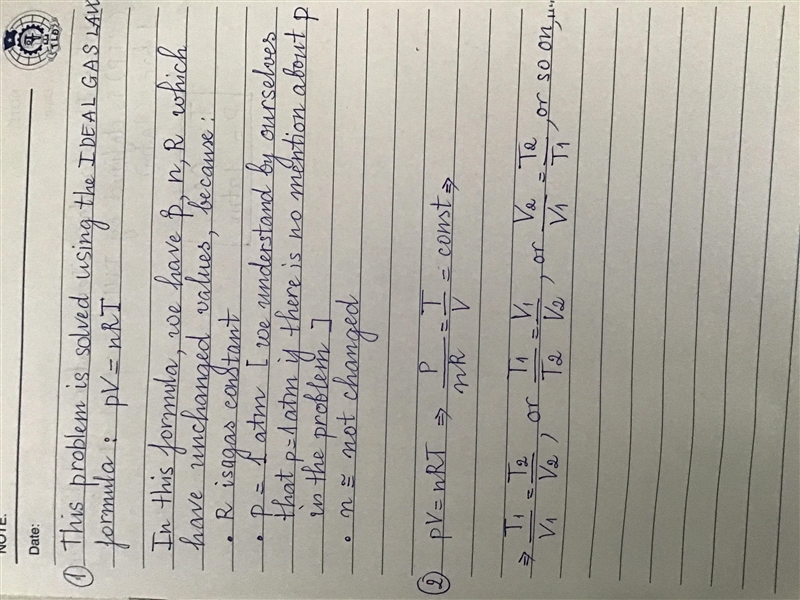 NOTE:
Date:
① This problem is solved using the IDEAL GAS LAW
formula : pV = nRT
In this formula, we have p, n, R which
have unchanged values, because :
• R is a gas constant
• P = 1 atm [ we understand by ourselves
that p = 1 atm if there is no mention about p
in the problem ]
• n ≅ not changed
② pV = nRT ⇒ P/nR = T/V = const ⇒
⇒ T1/V1 = T2/V2 , or T1/T2 = V1/V2 , or V2/V1 = T2/T1 , or so on,...